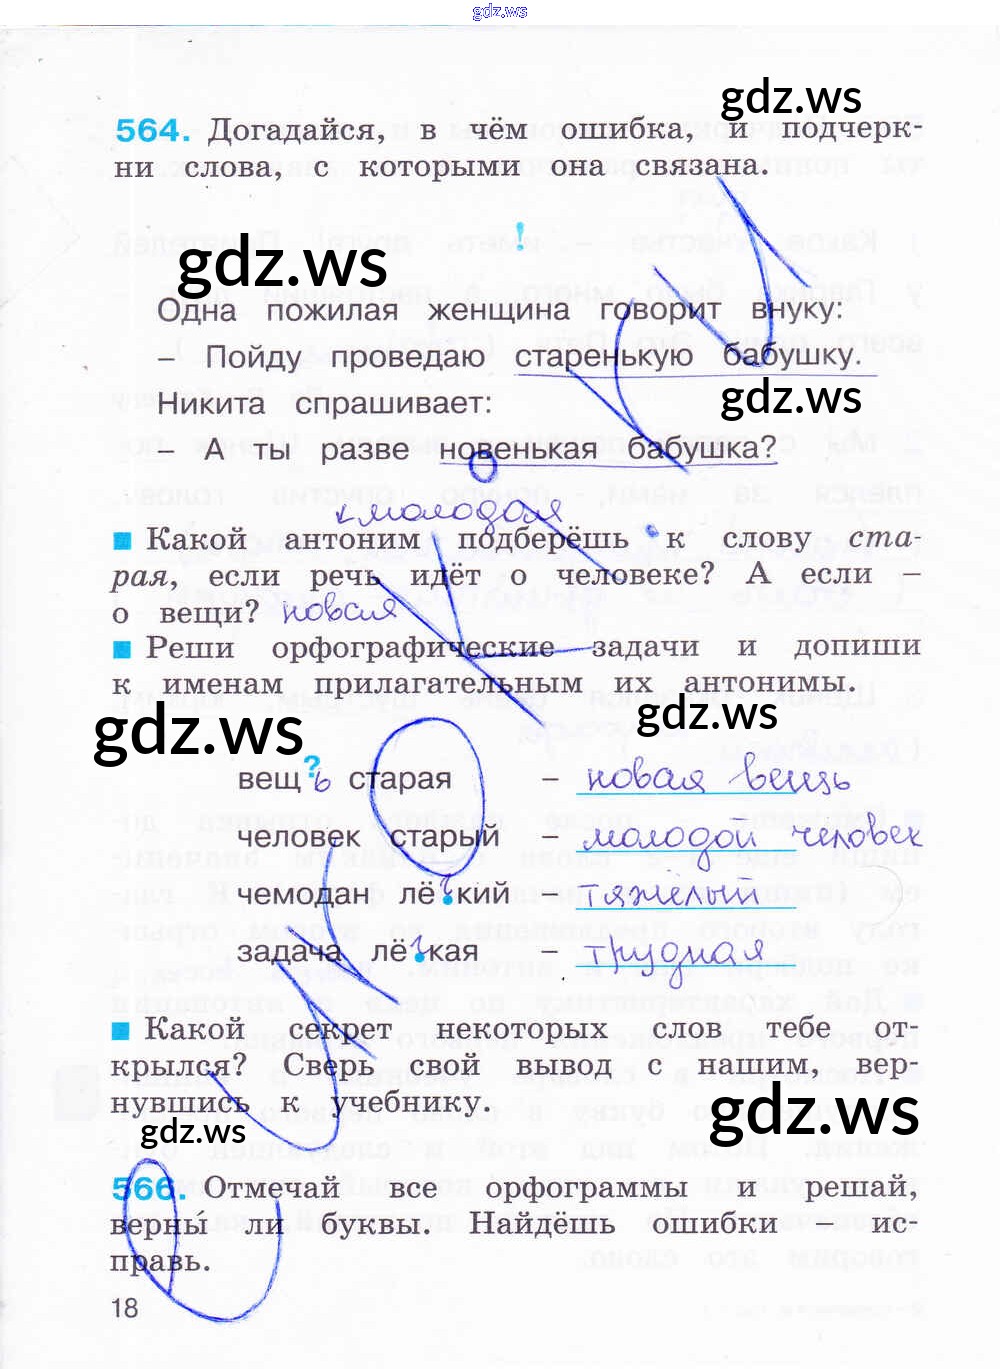 gdz.ws
gdz.ws
564. Догадайся, в чём ошибка, и подчерк-
ни слова, с которыми она связана.
!
gdz.ws
Одна пожилая женщина говорит внуку:
– Пойду проведаю старенькую бабушку.
gdz.ws
Никита спрашивает:
– А ты разве новенькая бабушка?
молодой
Какой антоним подберёшь к слову ста-
рая, если речь идёт о человеке? А если –
о вещи? новая
Реши орфографические задачи и допиши
к именам прилагательным их антонимы.
gdz.ws
gdz.ws
вещ?ь старая – новая вещь
человек старый – молодой человек
чемодан лё?кий – тяжёлый
задача лё?кая – трудная
Какой секрет некоторых слов тебе от-
крылся? Сверь свой вывод с нашим, вер-
нувшись к учебнику.
gdz.ws
gdz.ws
566. Отмечай все орфограммы и решай,
верны́ ли буквы. Найдёшь ошибки – ис-
правь.
18